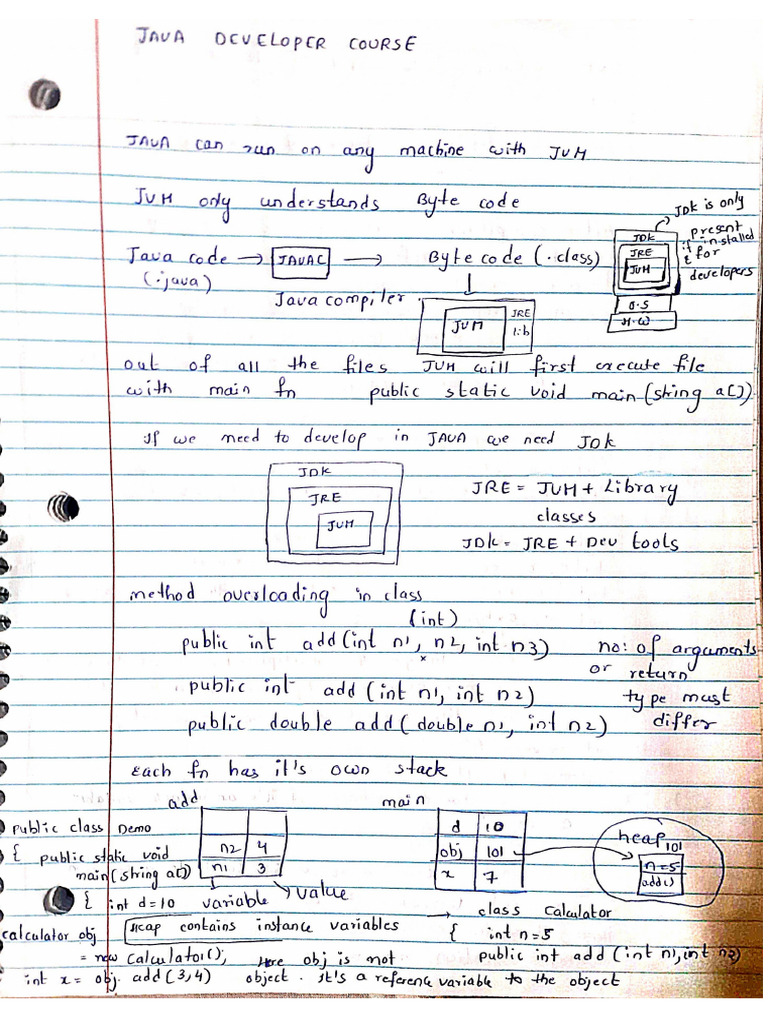 JAVA DEVELOPER COURSE
JAVA can run on any machine with JVM
JVM only understands Byte code
JDK is only
present
if installed
& for
developers
JDK
JRE
JVM
O.S
H.W
Java code → JAVAC → Byte code (.class)
(.java)
Java compiler
JVM
JRE
lib
out of all the files JVM will first execute file
with main fn public static void main(string a[])
If we need to develop in JAVA we need JDK
JDK
JRE
JVM
JRE = JVM + Library
classes
JDK = JRE + Dev tools
method overloading in class
(int)
public int add(int n1, n2, int n3)
no: of arguments
or return
type must
differ
public int add (int n1, int n2)
public double add( double n1, int n2)
Each fn has it's own stack
add
n2 4
n1 3
variable → value
main
d 10
obj 101
x 7
heap
101
n=5
add()
public class Demo
{ public static void
main(string a[])
{ int d=10
calculator obj
= new Calculator();
int x = obj. add (3,4)
Heap contains instance variables
Here obj is not
object. It's a reference variable to the object
→ class Calculator
{ int n=5
public int add (int n1, int n2)